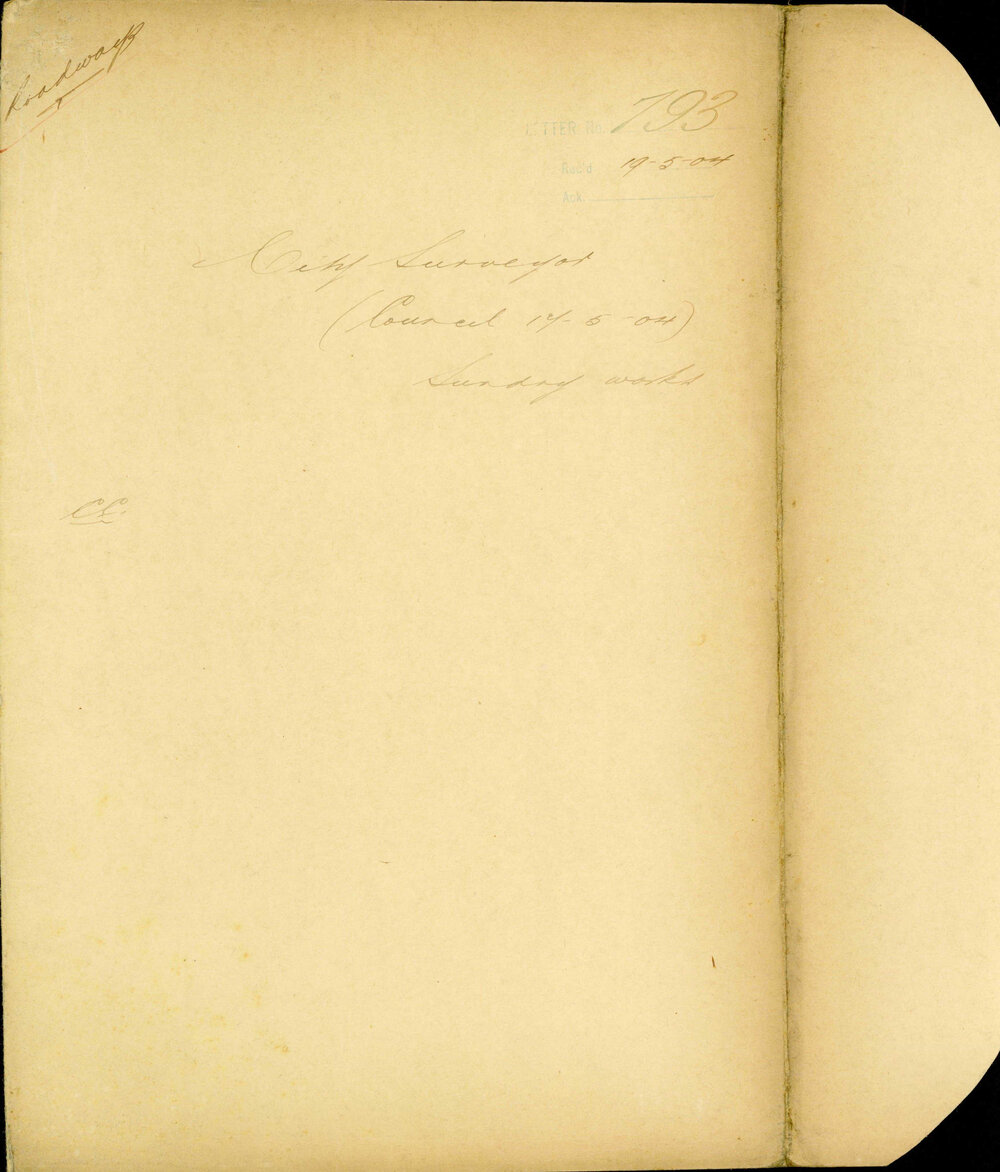 Roadways
LETTER No. 793
Rec'd 19-5-04
Ack.
City Surveyor
(Council 17-5-04)
Sundry works
C.C.